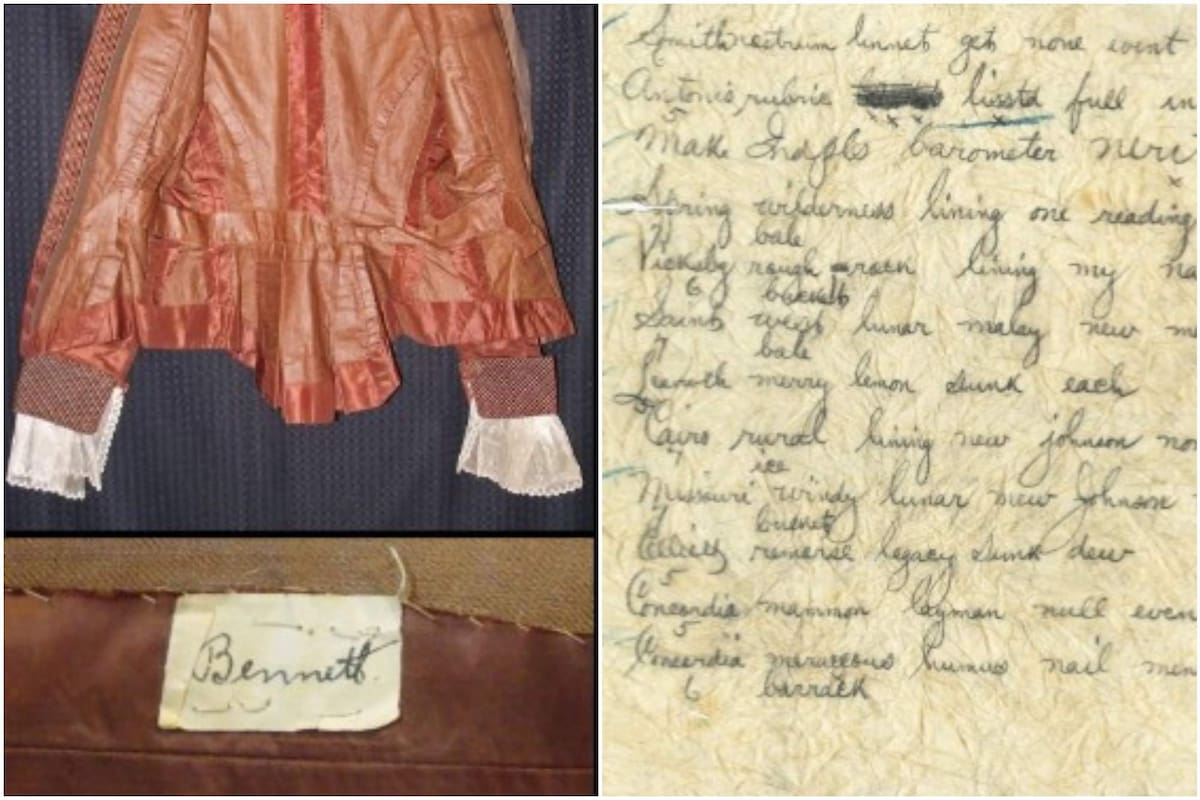 Bennett.
Smith nostrum linnet get none event
Antonio rubric lisstd full in
5
Make Indpls barometer neri
Spring wilderness lining one reading
7 bale
Vicksbg rough rack lining my na
6 bucket
Saint west lunar malay new m
7 bale
Leavwth merry lemon sunk each
5
Cairo rural lining new johnson no
7 ice
Missouri windy lunar mew Johnson
7 bucket
Elliott remorse legacy sunk dew
Concordia mammon layman null even
5
Concordia meraccous humus nail men
6 barrack